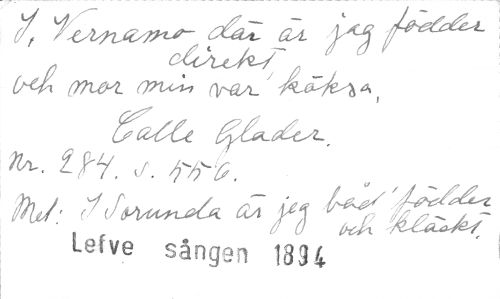 I, Vernamo där är jag födder
direkt,
och mor min var köksa,
Calle Glader.
Nr. 284. s. 556.
Mel: I Sorunda är jag båd' födder
och kläckt.
Lefve sången 1894